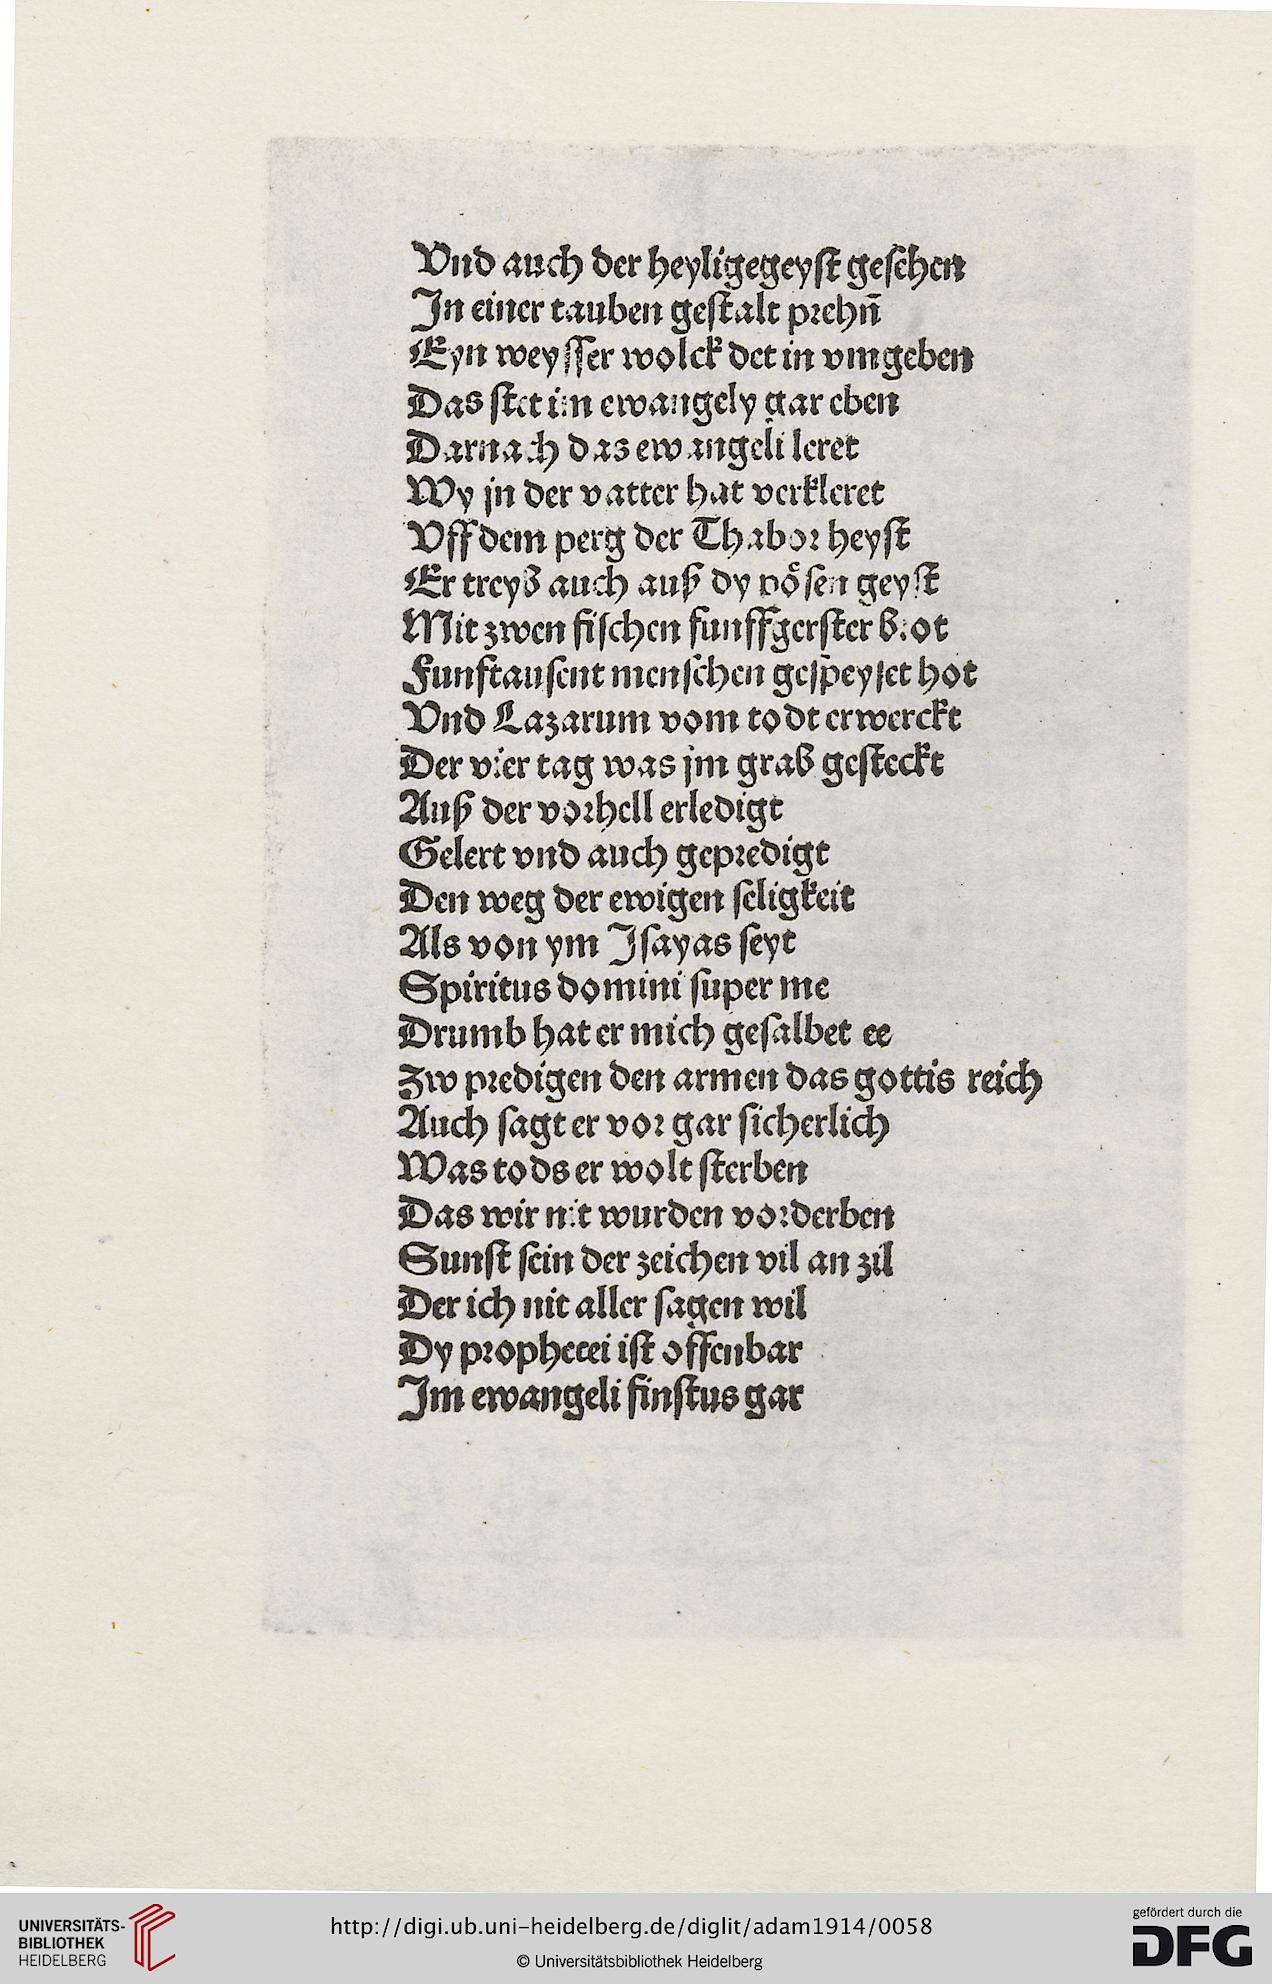 Vnd auch der heyligegeyſt geſehen
In einer tauben geſtalt prehn̄
Eyn weyſſer wolck det in vmgeben
Das ſtet im ewangely gar eben
Darnach das ewangeli leret
Wy jn der vatter hat verkleret
Vff dem perg der Thabor heyſt
Er treyb auch auß dy böſen geyſt
Mit zwen fiſchen funff gerſter brot
Funftauſent menſchen geſpeyſet hot
Vnd Lazarum vom todt erwerckt
Der vier tag was jm grab geſteckt
Auß der vorhell erledigt
Gelert vnd auch gepredigt
Den weg der ewigen ſeligkeit
Als von ym Iſayas ſeyt
Spiritus domini ſuper me
Drumb hat er mich geſalbet ee
Zw predigen den armen das gottis reich
Auch ſagt er vor gar ſicherlich
Was tods er wolt ſterben
Das wir nit wurden vorderben
Sunſt ſein der zeichen vil an zil
Der ich nit aller ſagen wil
Dy prophecei iſt offenbar
Im ewangeli finſtus gar
UNIVERSITÄTS-
BIBLIOTHEK
HEIDELBERG
http://digi.ub.uni-heidelberg.de/diglit/adam1914/0058
© Universitätsbibliothek Heidelberg
gefördert durch die
DFG